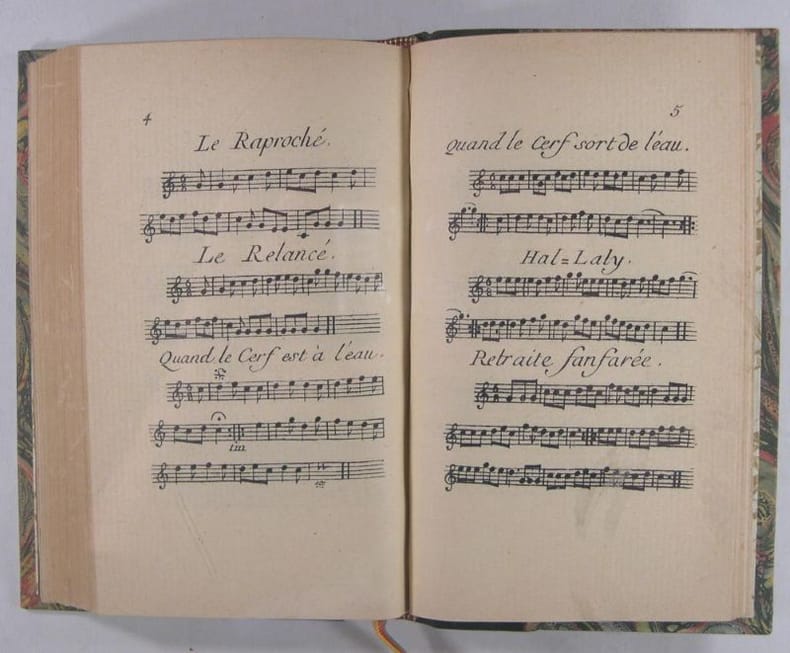 4
Le Raproché.
Le Relancé.
Quand le Cerf est à l'eau.
fin
5
Quand le Cerf sort de l'éau.
Hal=Laly.
Retraite fanfarée.